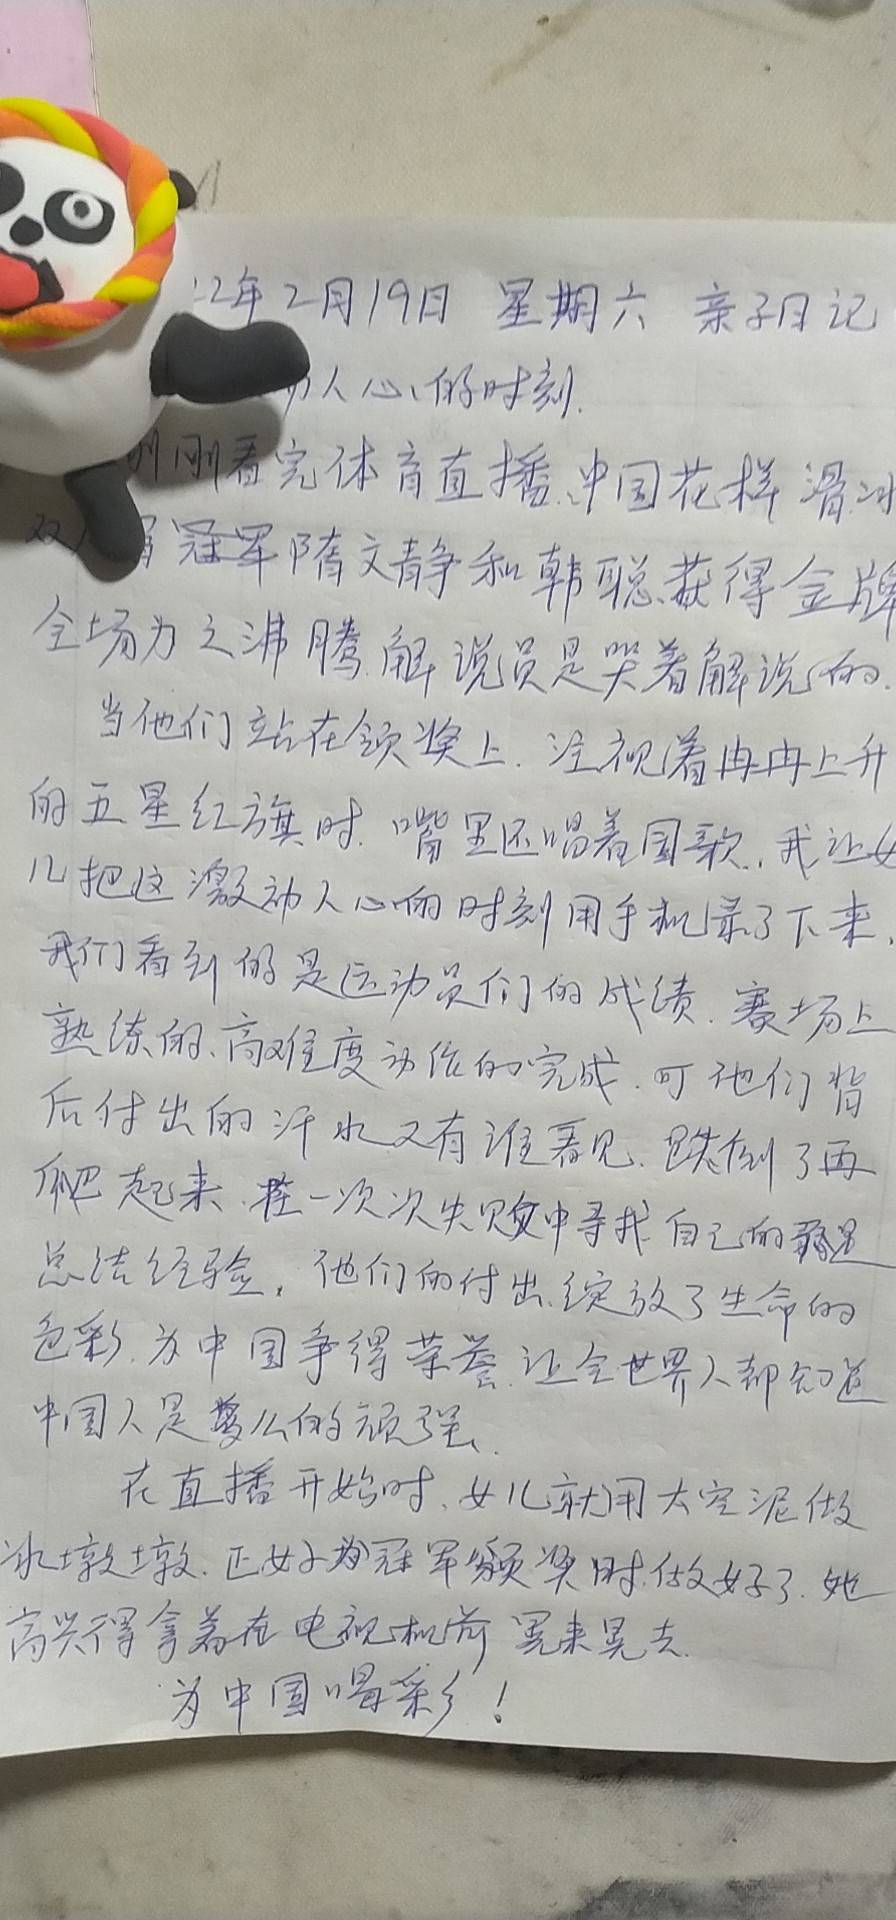 22年2月19日 星期六 亲子日记
动人心的时刻.
刚刚看完体育直播、中国花样滑冰
双人 冠军隋文静和韩聪、获得金牌
全场为之沸腾.解说员是哭着解说的.
当他们站在领奖上.注视着冉冉上升
的五星红旗时.嘴里还唱着国歌.我让女
儿把这激动人心的时刻用手机录了下来.
我们看到的是运动员们的成绩.赛场上
熟练的、高难度动作的完成.可他们背
后付出的汗水又有谁看见.跌倒了再
爬起来.在一次次失败中寻找自己的
总结经验.他们的付出.绽放了生命的
色彩.为中国争得荣誉.让全世界人都知道
中国人是多么的顽强.
在直播开始时、女儿就用太空泥做
冰墩墩.正好为冠军颁奖时.做好了.她
高兴得拿着在电视机前晃来晃去.
为中国喝彩!